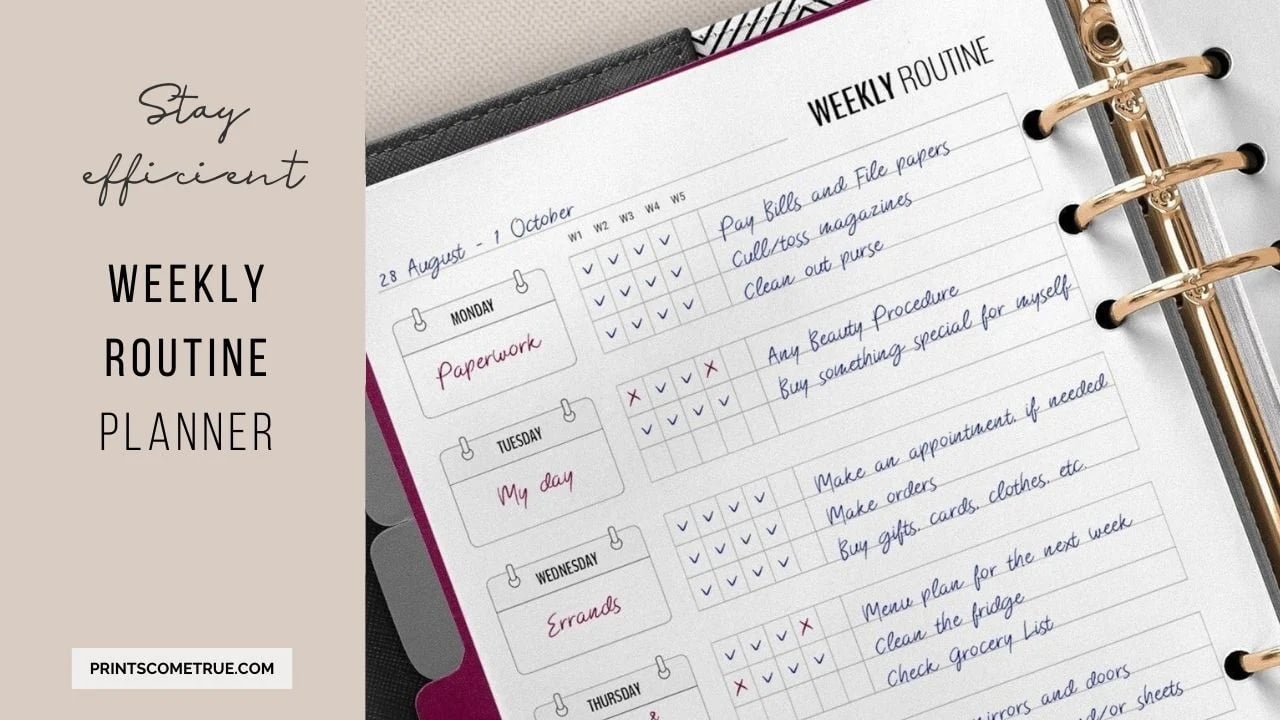 Stay
efficient
WEEKLY
ROUTINE
PLANNER
PRINTSCOMETRUE.COM
WEEKLY ROUTINE
28 August - 1 October
W1 W2 W3 W4 W5
MONDAY
Paperwork
Pay Bills and File papers
Cull/toss magazines
Clean out purse
TUESDAY
My day
Any Beauty Procedure
Buy something special for myself
WEDNESDAY
Errands
Make an appointment, if needed
Make orders
Buy gifts, cards, clothes, etc.
THURSDAY
&
Menu plan for the next week
Clean the fridge
Check Grocery List
mirrors and doors
and/or sheets